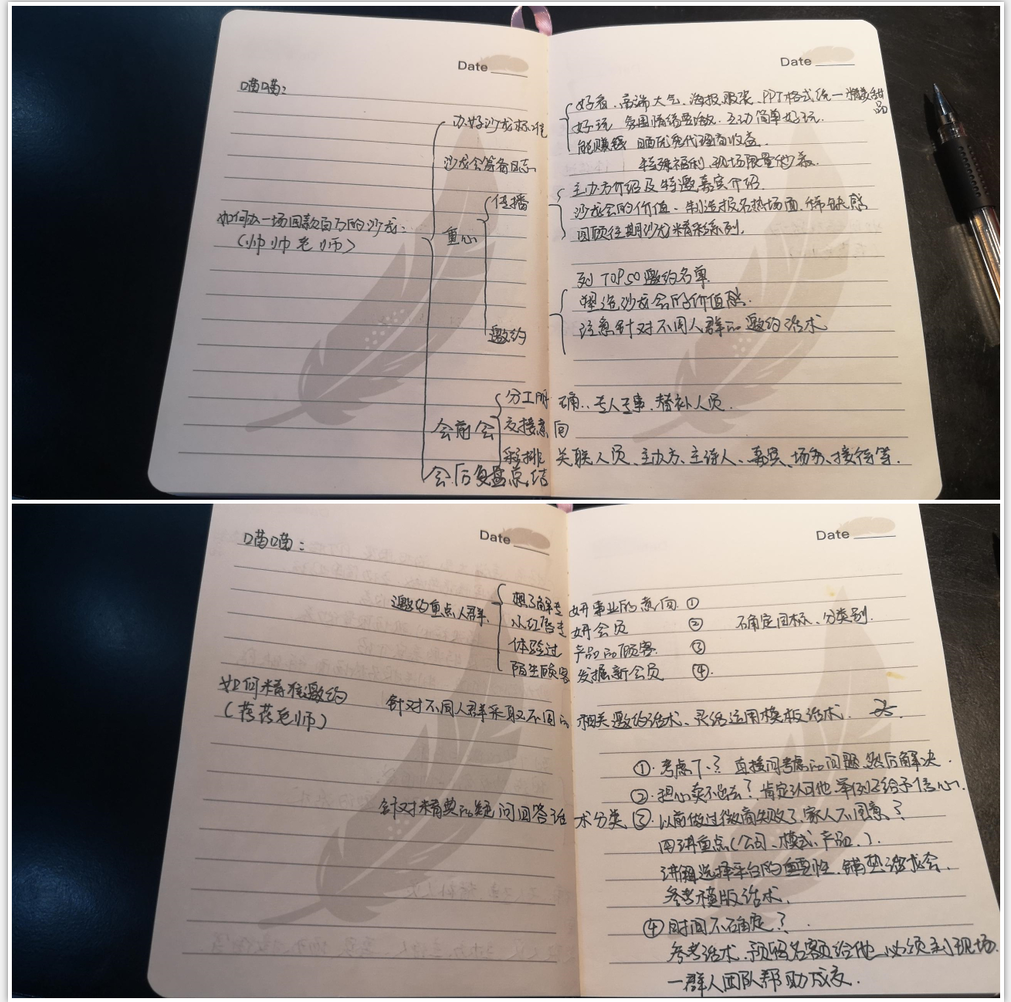 Date
Date
喵喵：
办好沙龙标准
好看、高端大气、海报服装、PPT格式统一 精美甜品
好玩 氛围情绪要嗨、互动简单好玩
能赚钱
特殊福利、现场限量
沙龙会筹备日志
如何办一场回款百万的沙龙：
（帅帅老师）
重心
传播
主办方介绍及特邀嘉宾介绍
沙龙会的价值、制造报名热场面、稀缺感
回顾往期沙龙精彩系列
邀约
列TOP50邀约名单
塑造沙龙会的价值感
注意针对不同人群的邀约话术
会前会
分工明确、专人专事、替补人员
彩排 关联人员、主办方、主持人、嘉宾、场务、接待等
会后复盘总结
Date
Date
喵喵：
邀约重点人群
想了解 事业的意向 ①
会员 ② 确定目标、分类别
体验过产品的顾客 ③
陌生顾客 发掘新会员 ④
如何精准邀约
针对不同人群采取不同的相关邀约话术、灵活运用模板话术
针对精典的疑问回答话术分类
①考虑下？直接问考虑的问题，然后解决
②担心卖不出去？肯定认可他、举例子给予信心
③以前做过微商失败了，家人不同意？
讲重点（公司、模式、产品）
讲解选择平台的重要性、铺垫沙龙会
参考模版话术
④时间不确定？
参考话术，预留名额给他，必须到现场
一群人团队帮助成交